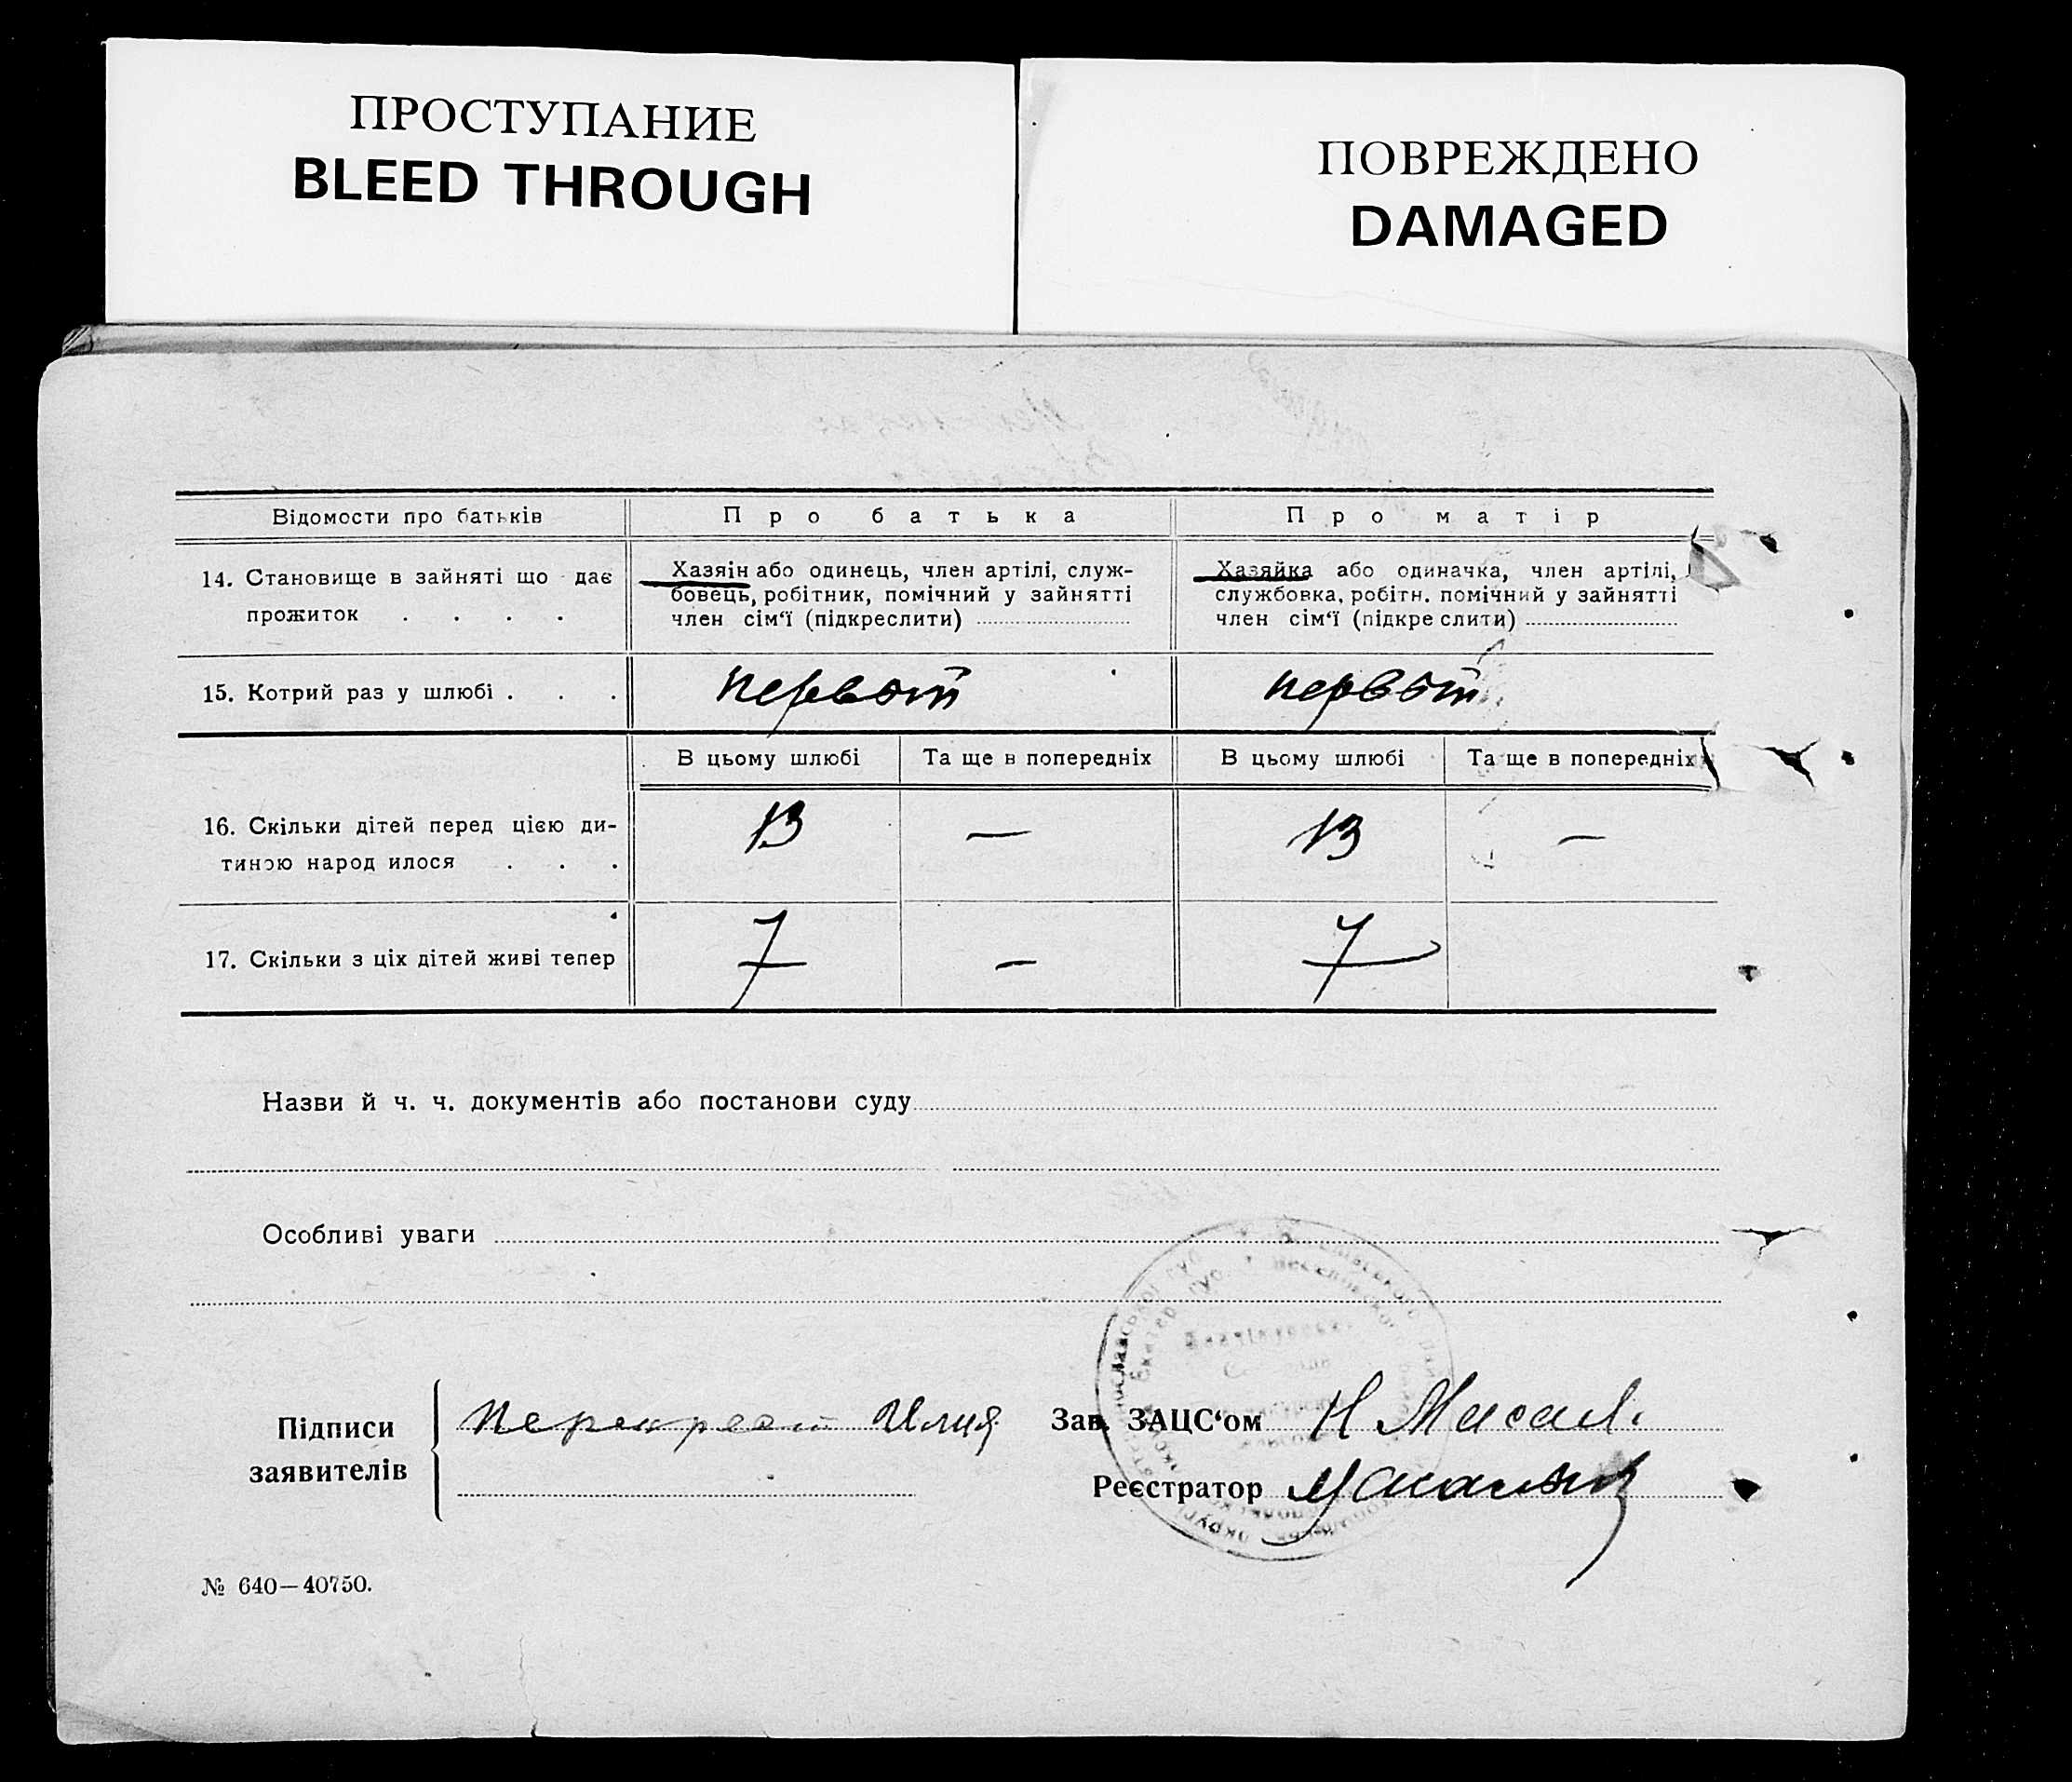 ПРОСТУПАНИЕ
BLEED THROUGH
ПОВРЕЖДЕНО
DAMAGED
Відомости про батьків
Про батька
Про матір
14. Становище в зайняті що дає
прожиток . . . .
Хазяін або одинець, член артілі, служ-
бовець, робітник, помічний у зайнятті
член сім‘ї (підкреслити)
Хазяйка або одиначка, член артілі,
службовка, робітн. помічний у зайнятті
член сім‘ї (підкре слити)
15. Котрий раз у шлюбі . . .
первый
первый
В цьому шлюбі
Та ще в попередніх
В цьому шлюбі
Та ще в попередніх
16. Скільки дітей перед цією ди-
тиною народ илося . . .
13
—
13
—
17. Скільки з ціх дітей живі тепер
7
—
7
Назви й ч. ч. документів або постанови суду
Особливі уваги
Підписи
заявителів
Перекрест Илия
Зав. ЗАЦС‘ом Н
Реєстратор
№ 640—40750.